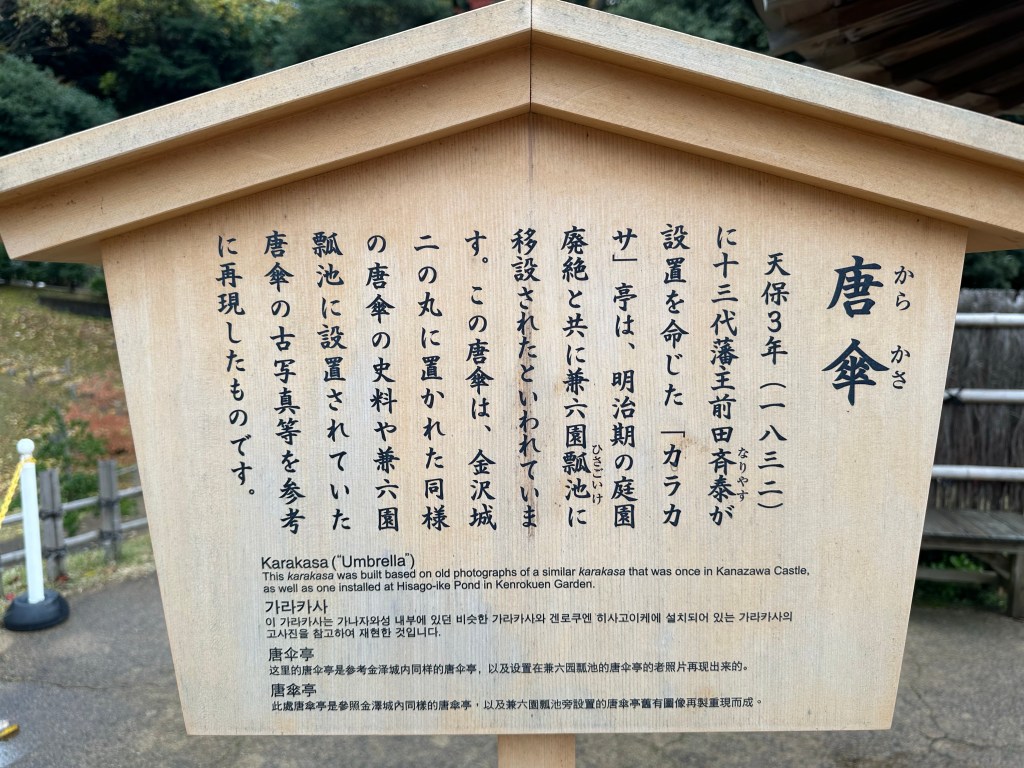 唐傘
から かさ
天保3年(一八三二)
に十三代藩主前田斉泰が
なりやす
設置を命じた「カラカ
サ」亭は、明治期の庭園
廃絶と共に兼六園瓢池に
ひさごいけ
移設されたといわれていま
す。この唐傘は、金沢城
二の丸に置かれた同様
の唐傘の史料や兼六園
瓢池に設置されていた
唐傘の古写真等を参考
に再現したものです。
Karakasa ("Umbrella")
This karakasa was built based on old photographs of a similar karakasa that was once in Kanazawa Castle,
as well as one installed at Hisago-ike Pond in Kenrokuen Garden.
가라카사
이 가라카사는 가나자와성 내부에 있던 비슷한 가라카사와 겐로쿠엔 히사고이케에 설치되어 있는 가라카사의
고사진을 참고하여 재현한 것입니다.
唐伞亭
这里的唐伞亭是参考金泽城内同样的唐伞亭，以及设置在兼六园瓢池的唐伞亭的老照片再现出来的。
唐傘亭
此處唐傘亭是參照金澤城內同樣的唐傘亭，以及兼六園瓢池旁設置的唐傘亭舊有圖像再製重現而成。